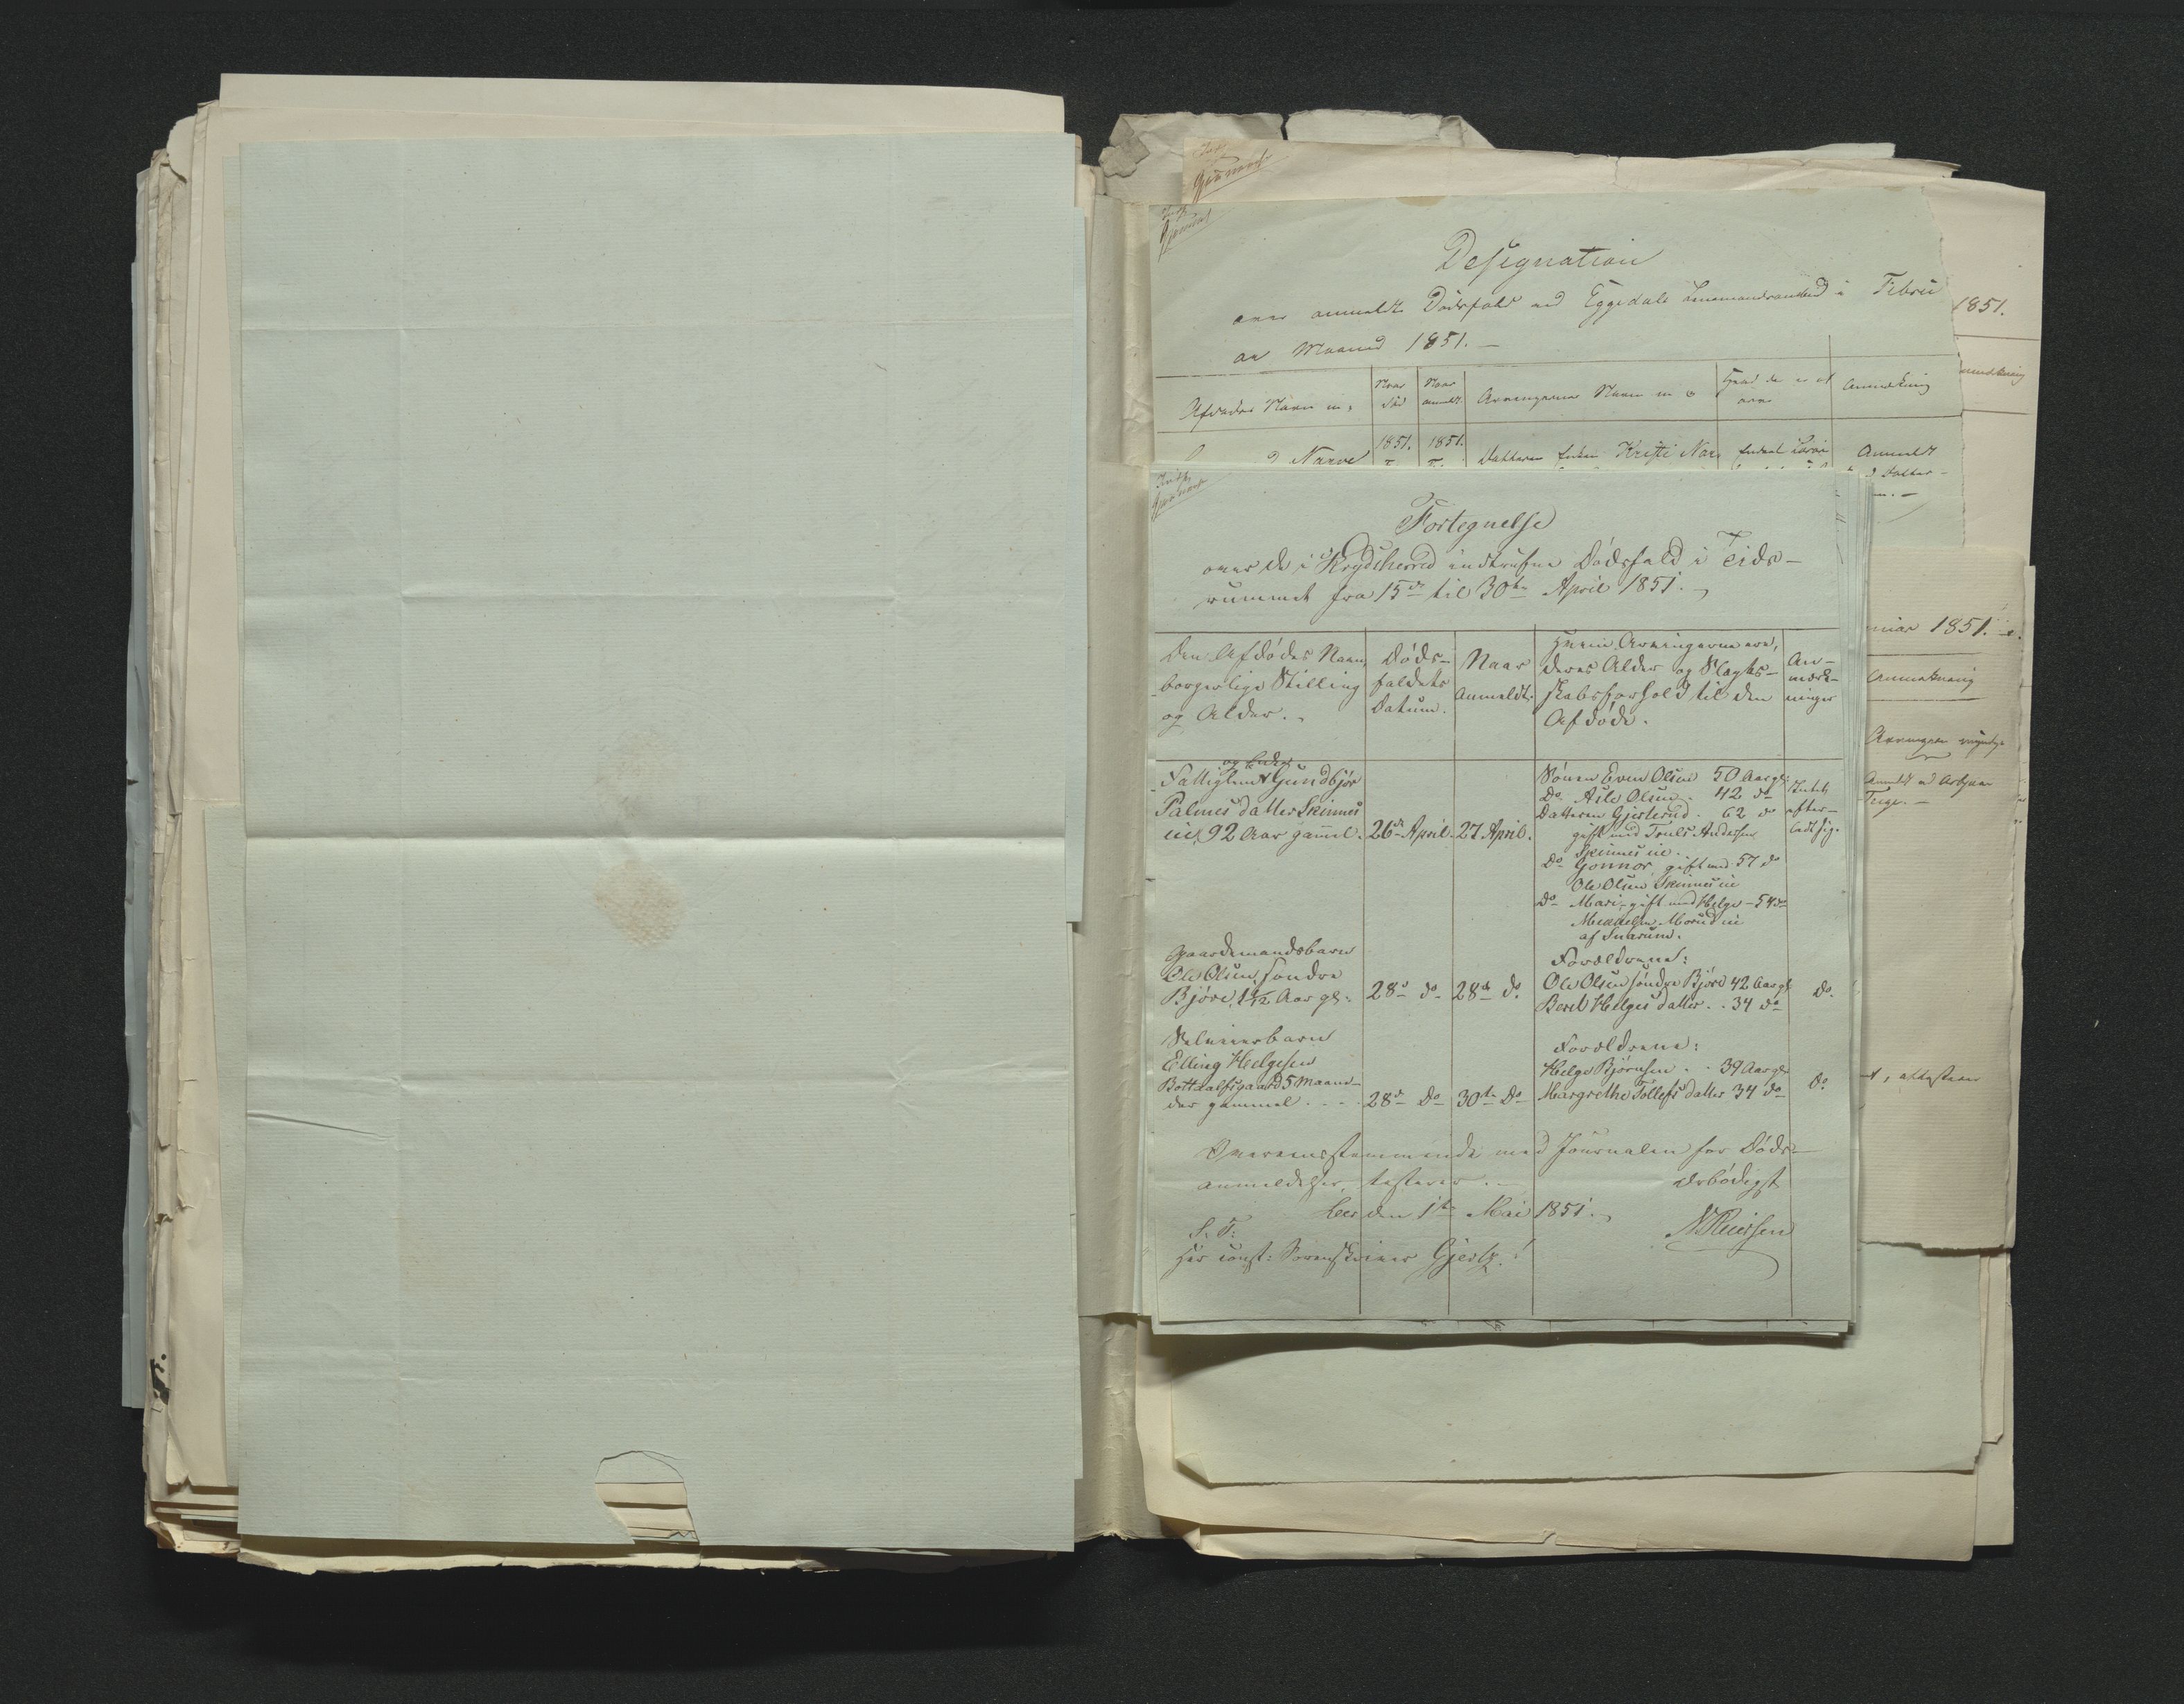 Designation
over anmeldte Dødsfald ved Eggedals Lensmandsombud i Febru
ar Maaned 1851. —
Afdødes Navn m,
Naar død
Naar anmeldt
Arvingernes Navn m v
Hvad de er at arve
Anmærkning
Narve
1851.
1851.
Datteren Enken Kristi Nar
Anmeldt
Datter
1851.
Fortegnelse
over de i Krydsherred indtrufne Dødsfald i Tids-
rummet fra 15de til 30te April 1851.
Den Afdødes Navn,
borgerlige Stilling
og Alder.
Døds-
faldets
Datum.
Naar
Anmeldt.
Hvem Arvingerne ere,
deres Alder og Slægts-
skabsforhold til den
Afdøde.
An-
mærk-
ninger
og Enke
Fattiglem Gundbjør
Palmesdatter Skinnes
eie, 92 Aar gammel.
26de April.
27 April.
Sønen Even Olsen 50 Aar gl:
Do Asle Olsen 42 do
Datteren Gjertrud 62 do
gift med Truls Andersen
Skinnes eie.
Do Gonnor, gift med 57 do
Ole Olsen Skinnes eie
Do Mari, gift med Helge - 54 do
Mikkelsen Morud eie
af Snarum.
Intet
efter-
ladt sig.
Gaardmandsbarn
Ole Olsen, søndre
Bjøre, 1 1/12 Aar gl:
28de do
28de do.
Forældrene:
Ole Olsen søndre Bjøre 42 Aar gl
Berit Helgesdatter . . 34 do
do.
Selveierbarn
Elling Helgesen
Bottolfsgaard 5 Maane-
der gammel . . . .
28de do
30te do
Forældrene:
Helge Bjørnsen . . 39 Aar gl
Margrethe Tollefsdatter 34 do
do.
Overensstemmende med Journalen for Døds-
anmeldelser, testeres. —
Ærbødigst
Lees den 1te Mai 1851.
N Reiersen
S. T.
Hr const: Sorenskriver Gjertz!
nuar 1851.
Anmærkning
Arvingerne myndige
attesterer